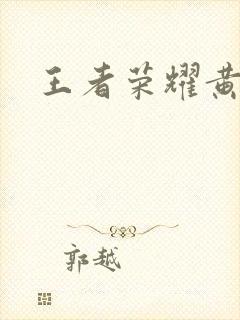 王者荣耀黄
郭越